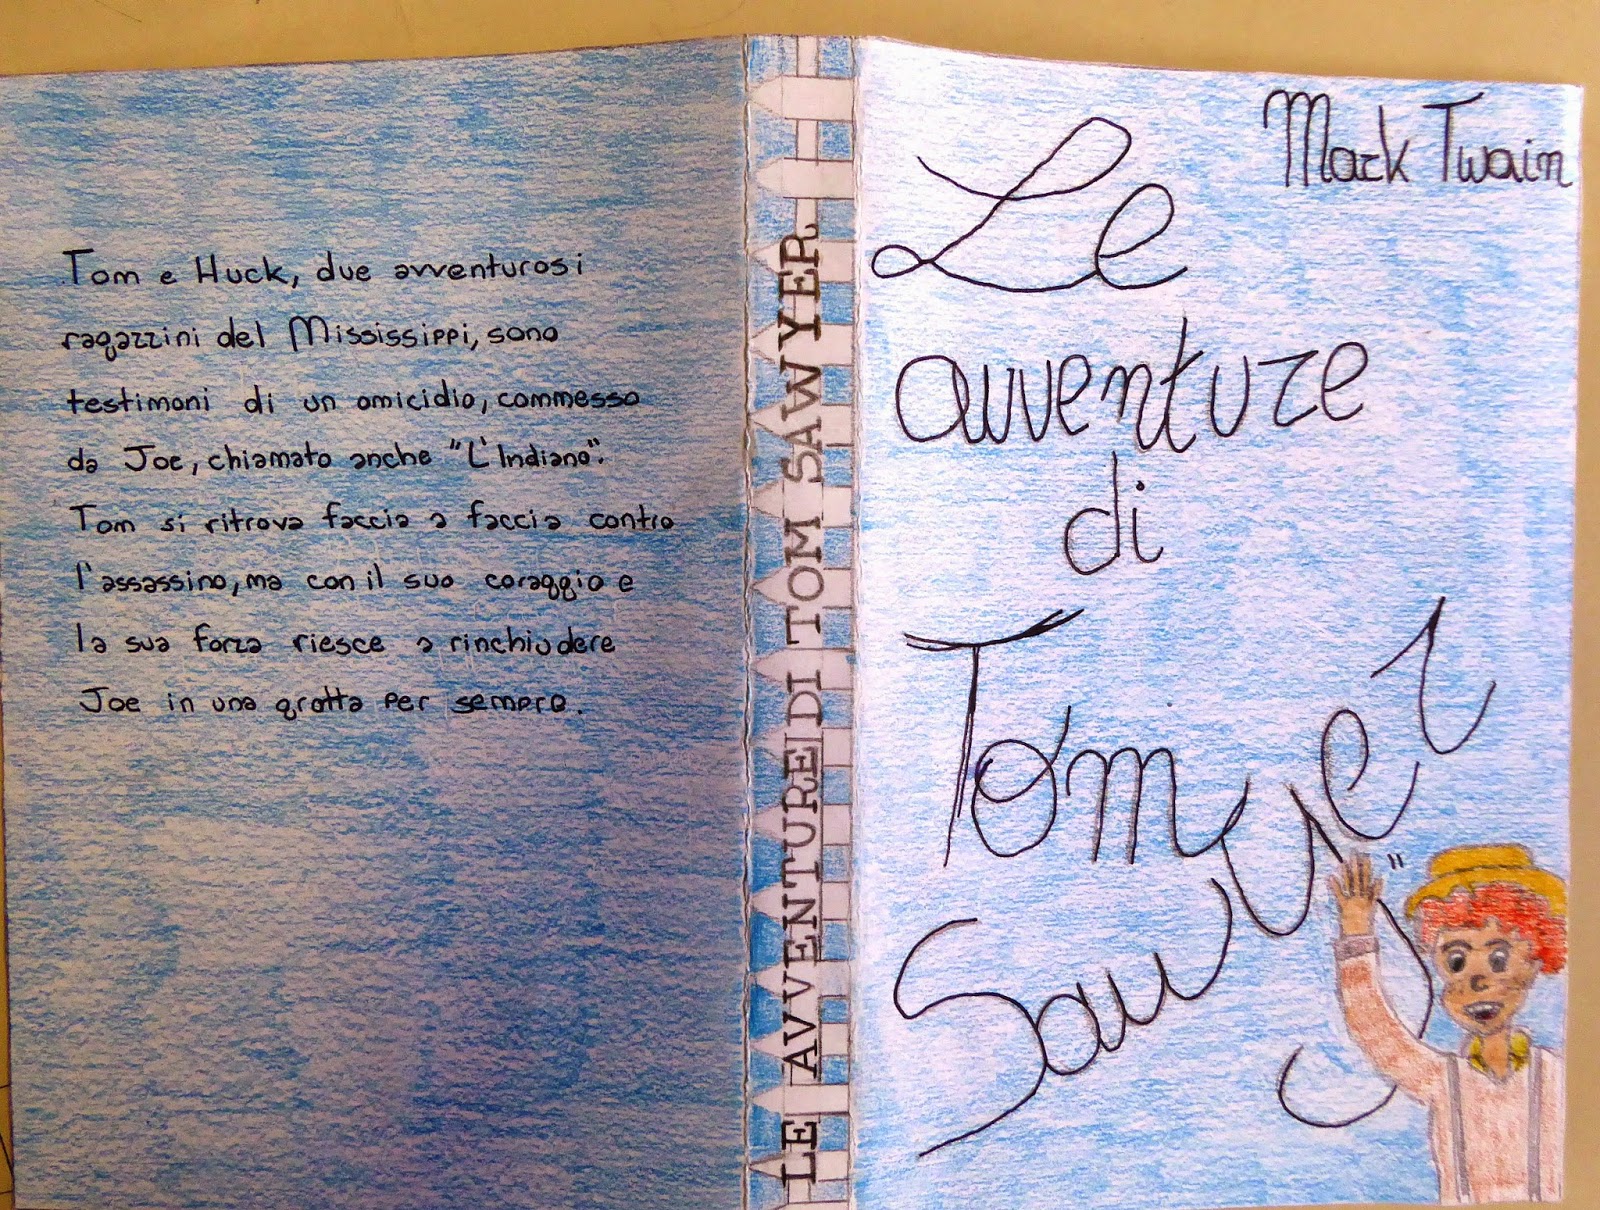 Tom e Huck, due avventurosi
ragazzini del Mississippi, sono
testimoni di un omicidio, commesso
da Joe, chiamato anche "L'Indiano".
Tom si ritrova faccia a faccia contro
l'assassino, ma con il suo coraggio e
la sua forza riesce a rinchiudere
Joe in una grotta per sempre.
LE AVVENTURE DI TOM SAWYER
Mark Twain
Le
avventure
di
Tom
Sawyer